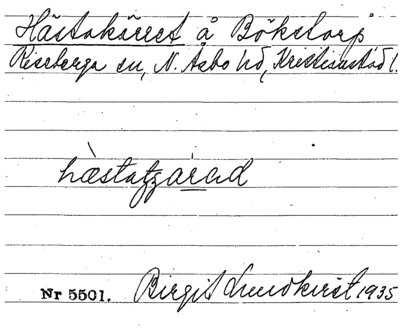 Hästakärret å Bökstorp
Riseberga sn, N. Åsbo hd, Kristianstad l.
Nr 5501. Birgit Lundkvist 1935